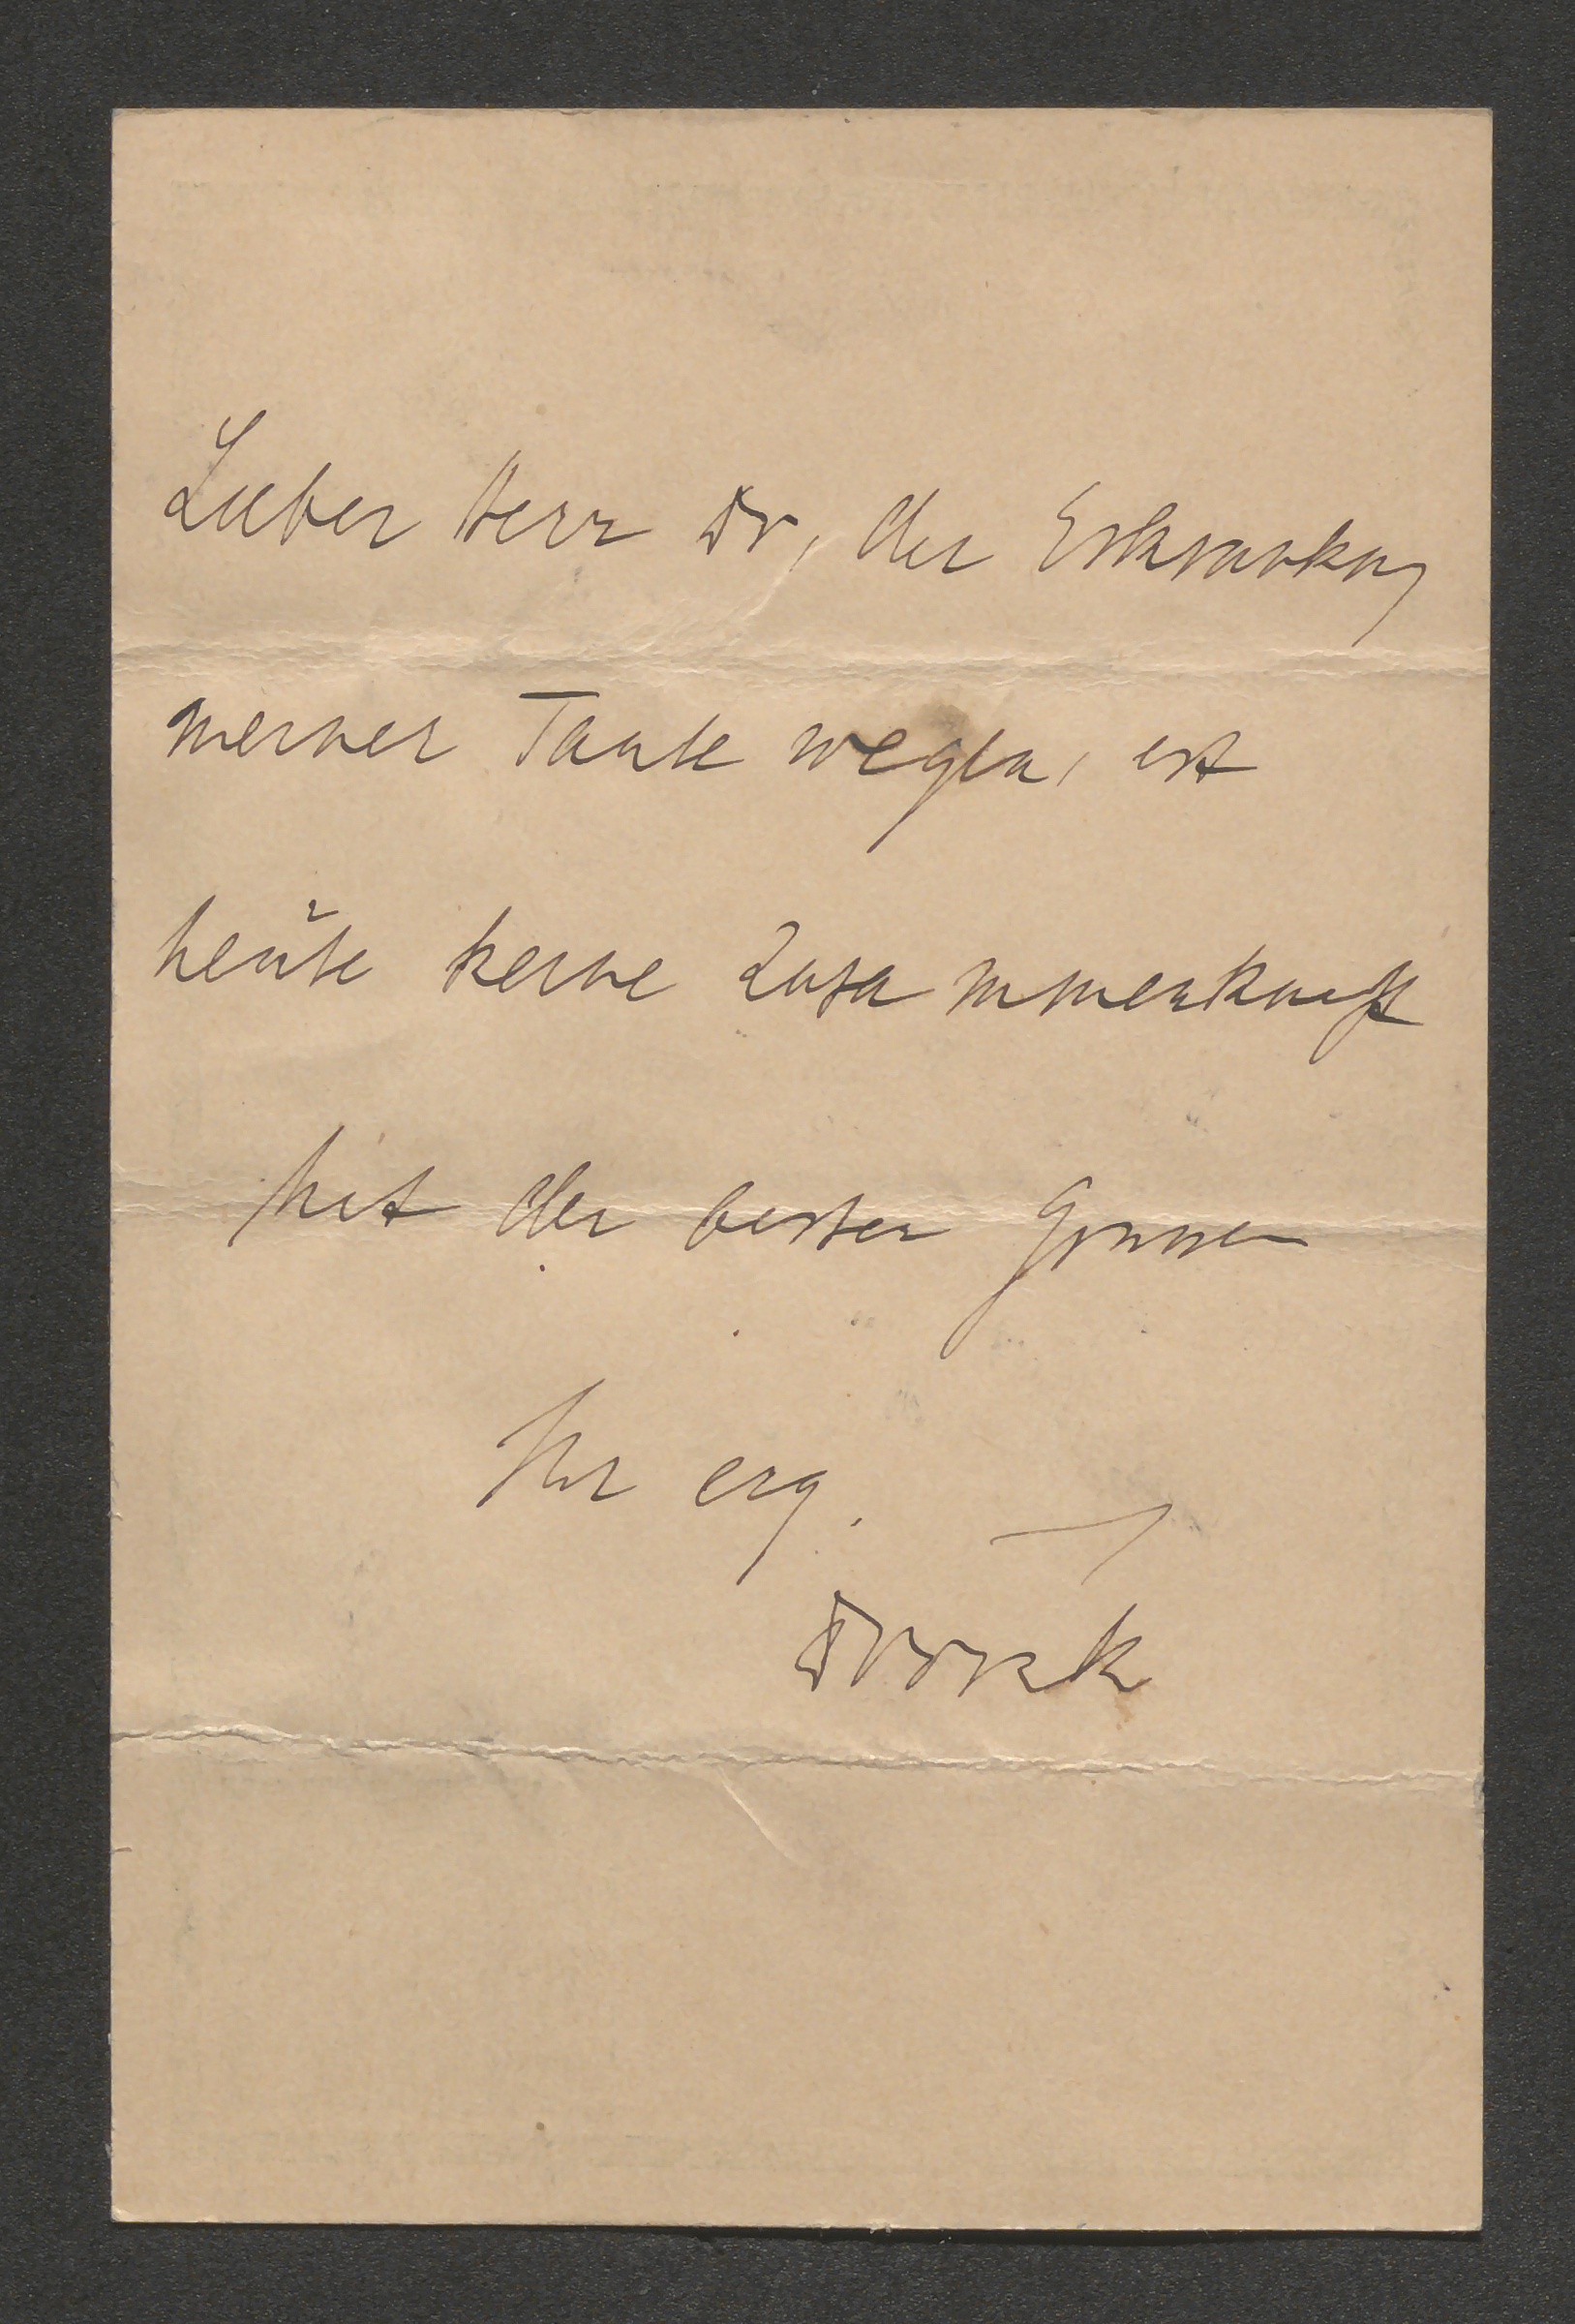 Lieber Herr Dr, der Erkrankung
meiner Tante wegen, ist
heute keine Zusammenkunft
Mit den besten Grüssen
Ihr erg.
Dvořák